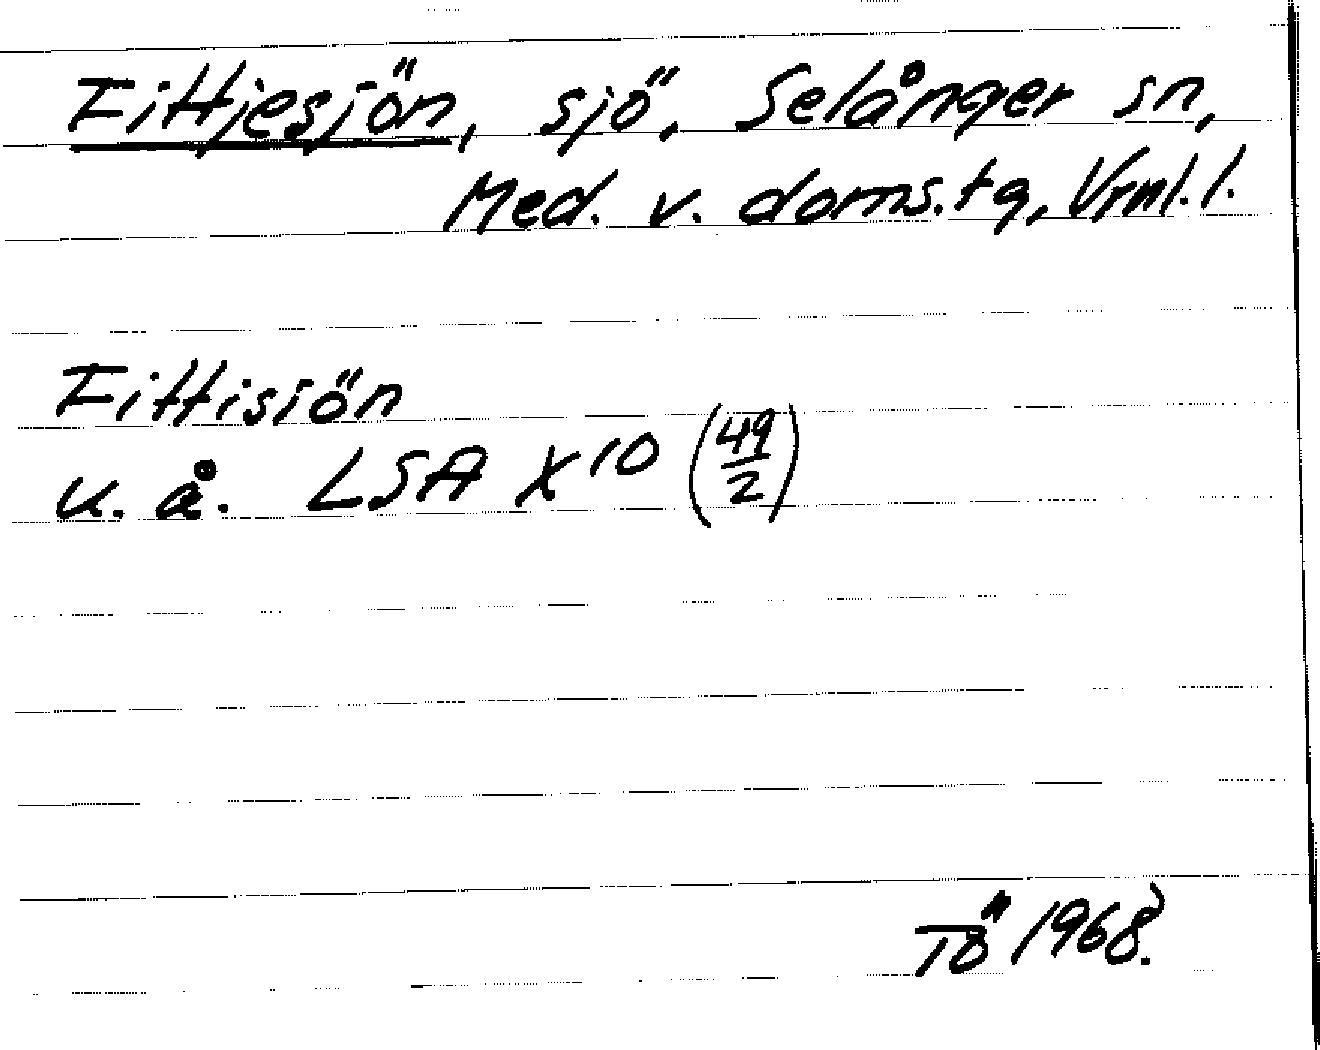 Fittjesjön, sjö, Selånger sn,
Med. v. doms.tg, Vrml.l.
Fittisiön
u. å. LSA X10 (49/2)
Tö 1968.